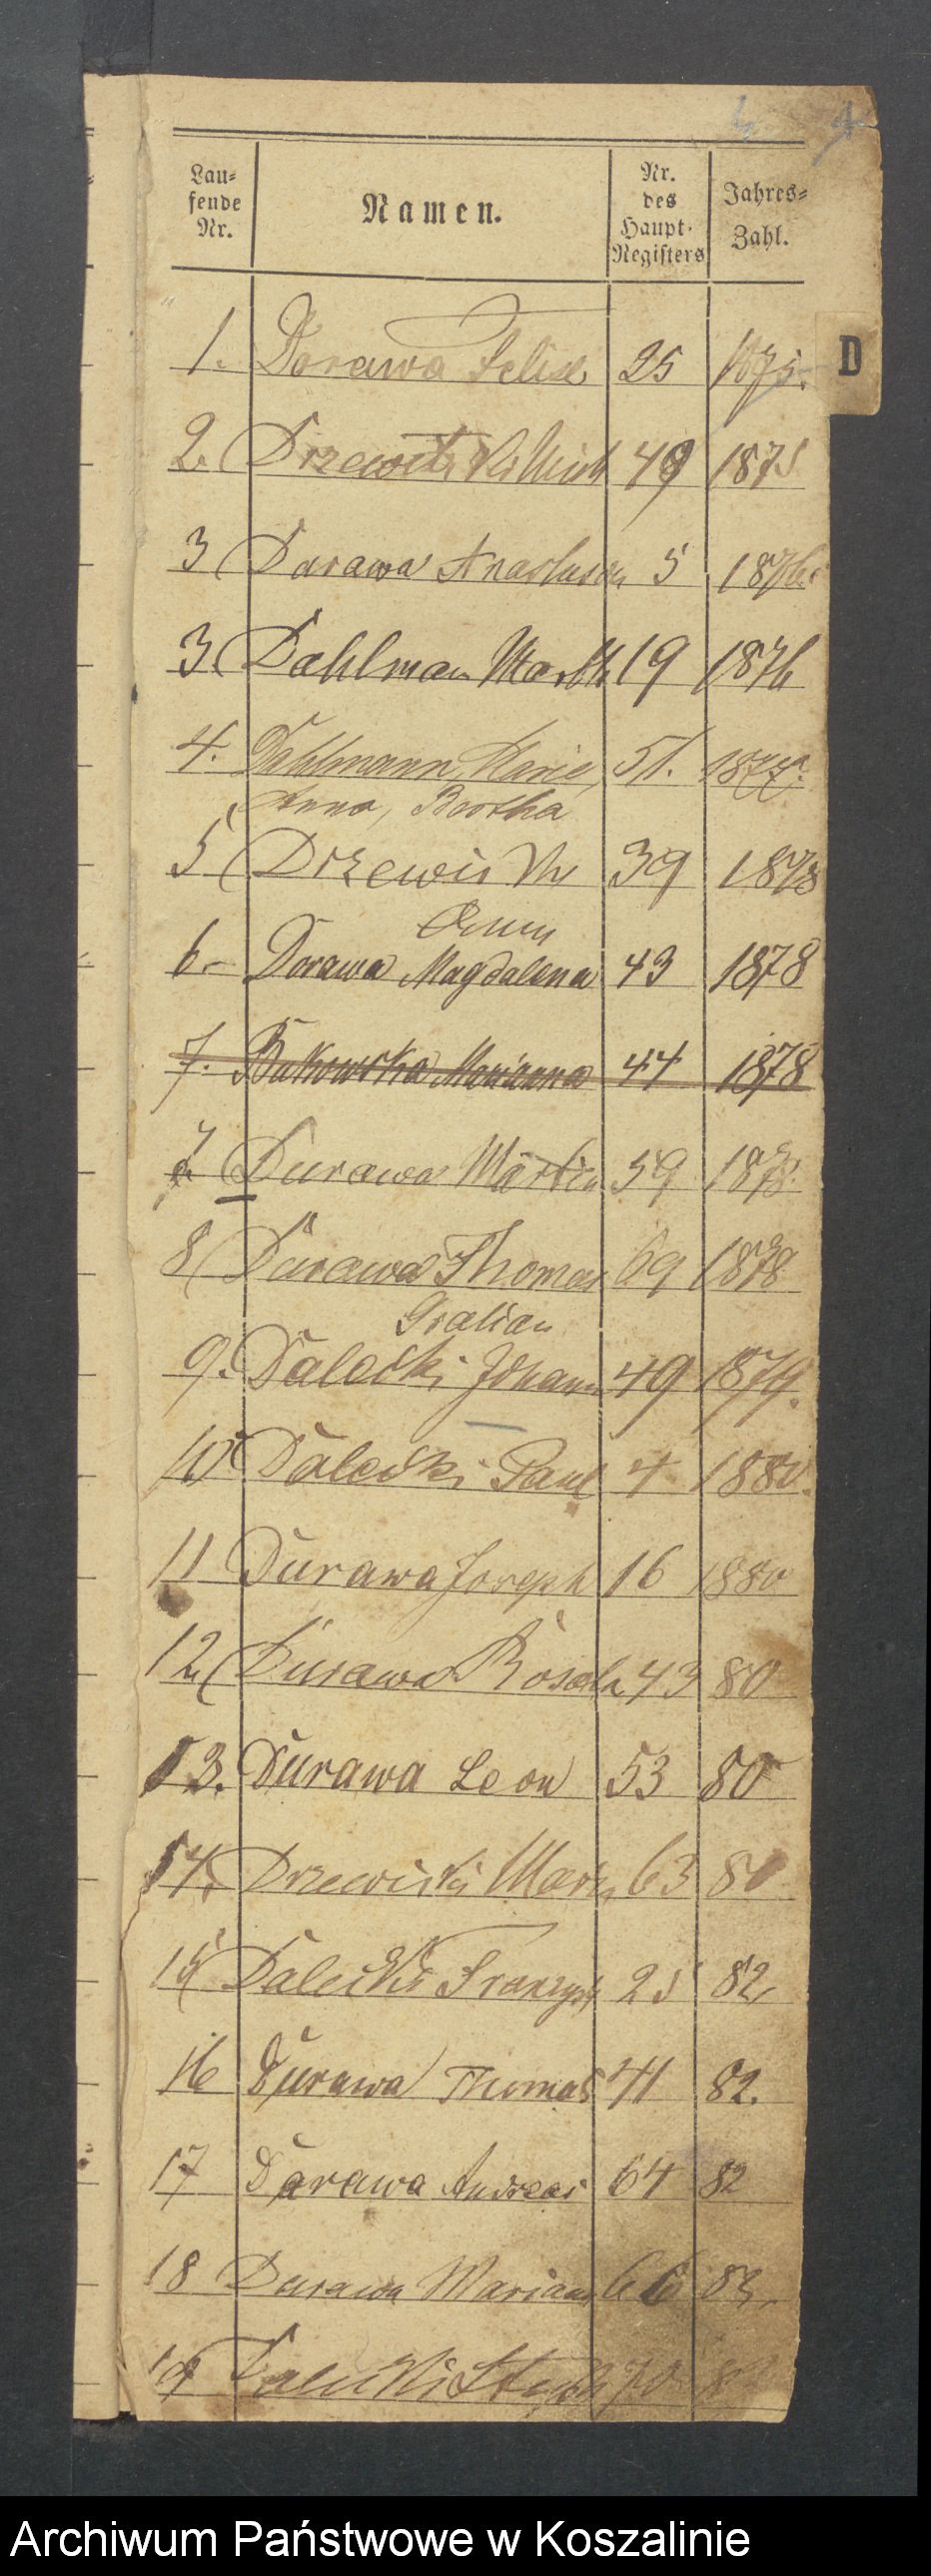 4
Lau=
fende
Nr.
Namen.
Nr.
des
Haupt-
Registers
Jahres=
Zahl.
D
1. Dorawa Felix 25 1875.
2. 49 1875
3 Durawa 5 1876.
3. Dahlman Marth 19 1876
4. Dahlmann, Marie, 51. 1877.
Anna, Bertha
5 39 1878
6 Dorawa Magdalena 43 1878
7. Bukowska Marianna 44 1878
7 Durawa Martin 59 1878.
8 Durawa Thomas 69 1878
Gratian
9. Dalecki Johann 49 1879.
10 Dalecki Paul 4 1880.
11 Durawa Joseph 16 1880
12 Durawa 43 80
13. Durawa Leon 53 80
14. 63 80
15 Dalecki 25 82
16 Durawa Thomas 41 82.
17 Durawa Andreas 64 82
18 Durawa 66 82.
19 Dalecki 70
Archiwum Państwowe w Koszalinie